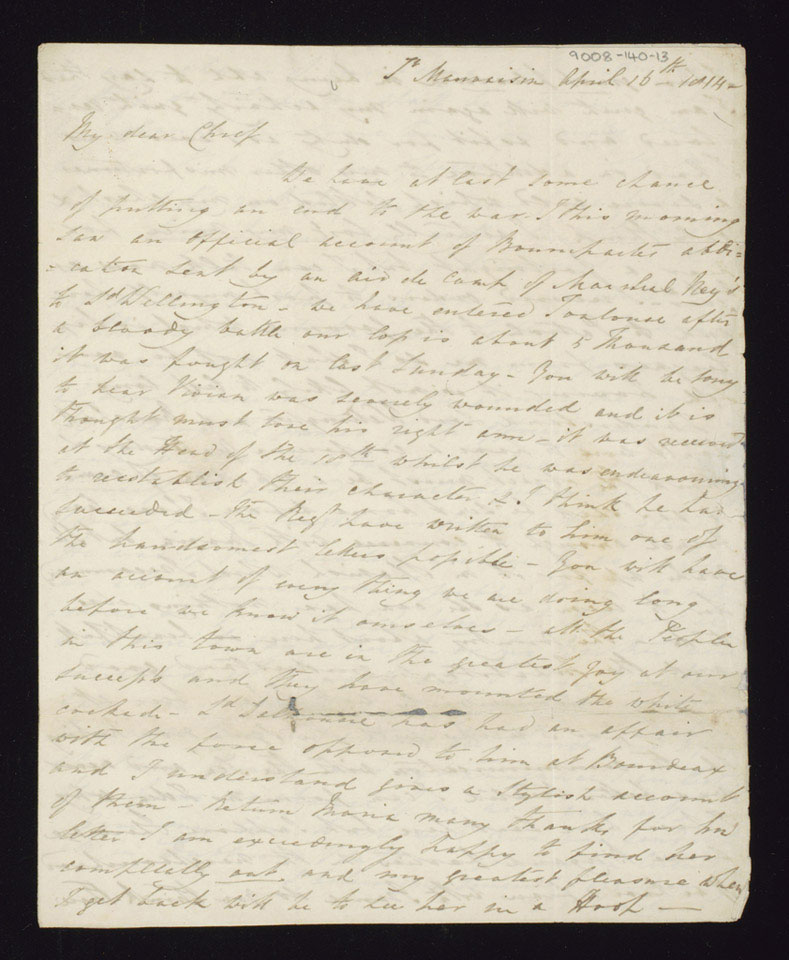 9008-140-13
April 16th 1814
My dear Chief
We have at last some chance
of putting an end to the war I this morning
saw an official account of Bounaparte's abdi=
=cation sent by an aid de camp of Marshal Ney's
to Ld Wellington - we have entered Toulouse after
a bloody battle our loss is about 5 Thousand
it was fought on last Sunday - You will be sorry
to hear Vivian was severely wounded and it is
thought must lose his right arm - it was received
at the Head of the 18th whilst he was endeavouring
to reestablish their character & I think he had
succeeded - the Regt have written to him one of
the handsomest letters possible - You will have
an account of every thing we are doing long
before we know it ourselves - all the People
in this town are in the greatest joy at our
success and they have mounted the white
cockade - Ld Dalhousie has had an affair
with the force opposed to him at Bourdeax
and I understand gives a Stylish account
of them - Return Maria many thanks for her
letter I am exceedingly happy to find her
completely out and my greatest pleasure when
I get back will be to see her in a Hoop -